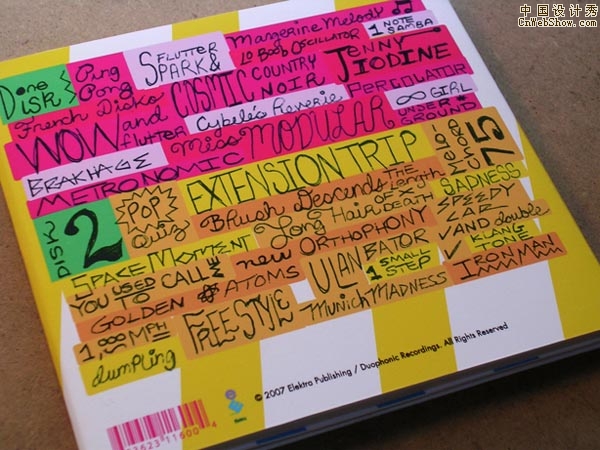 中国设计秀
CnWebShow.com
Disk
One
Ping
Pong
French Disko
WOW and
flutter
BRAKHAGE
METRONOMIC
FLUTTER
SPARK &
COSMIC COUNTRY
NOIR
Cybele's Reverie
Miss MODULAR
Mangerine Melody
Lo Boob OSCILLATOR
1 NOTE
SAMBA
JENNY
IODINE
PERCOLATOR
∞ GIRL
UNDER IS
GROUND
DISK
2
POP
Quiz
EXTENSION TRIP
MELO
CHORD
75
Blush Descends
THE
Length
OF X
DEATH
SADNESS
SPACE MOMENT
Long Hair
SPEEDY
CAR
YOU USED
TO CALL
ME
new
ORTHOPHONY
AND double
KLANG
TONE
GOLDEN
ATOMS
ULAN
BATOR
1 SMALL
STEP
IRON MAN
1,000 MPH
FREE STYLE
Munich MADNESS
dumpling
© 2007 Elektra Publishing / Duophonic Recordings. All Rights Reserved